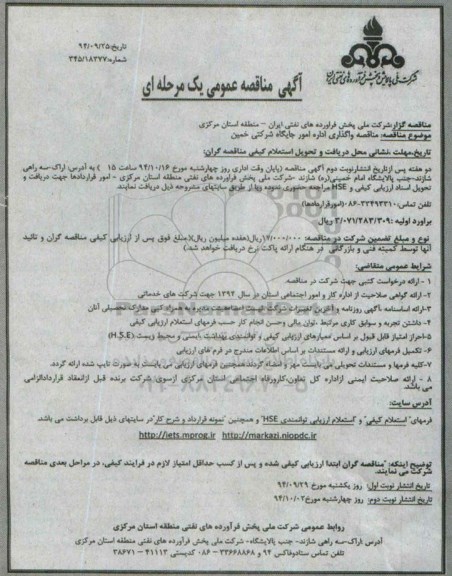 تاریخ:۹۴/۰۹/۲۵
شماره:۳۴۵/۱۸۳۷۷
شرکت ملی پالایش و پخش فرآورده های نفتی ایران
آگهی مناقصه عمومی یک مرحله ای
مناقصه گزار:شرکت ملی پخش فراورده های نفتی ایران – منطقه استان مرکزی
موضوع مناقصه: مناقصه واگذاری اداره امور جایگاه شرکتی خمین
تاریخ،مهلت ،نشانی محل دریافت و تحویل استعلام کیفی مناقصه گران:
دو هفته پس ازتاریخ انتشارنوبت دوم آگهی مناقصه (پایان وقت اداری روز چهارشنبه مورخ ۹۴/۱۰/۱۶ ساعت ۱۵ ) به آدرس: اراک-سه راهی
شازند-جنب پالایشگاه امام خمینی(ره) شازند -شرکت ملی پخش فراورده های نفتی منطقه استان مرکزی – امور قراردادها جهت دریافت و
تحویل اسناد ارزیابی کیفی و HSE مراجعه حضوری نموده ویا از طریق سایتهای مشروحه ذیل دریافت نمایند.
تلفن تماس: ۳۳۴۹۳۳۱۰-۰۸۶(امورقراردادها)
برآورد اولیه :۳/۰۷۱/۴۸۳/۳۰۹ ریال
نوع و مبلغ تضمین شرکت در مناقصه: ۱۷/۰۰۰/۰۰۰ریال(هفده میلیون ریال)(مبلغ فوق پس از ارزیابی کیفی مناقصه گران و تائید
آنها توسط کمیته فنی و بازرگانی در هنگام ارائه پاکت نرخ دریافت خواهد شد.)
شرایط عمومی متقاضی:
۱ - ارائه درخواست کتبی جهت شرکت در مناقصه.
۲- ارائه گواهی صلاحیت از اداره کار و امور اجتماعی استان در سال ۱۳۹۴ جهت شرکت های خدماتی
۳- ارائه اساسنامه ،آگهی روزنامه و آخرین تغییرات شرکت ،لیست اعضاءهیئت مدیره به همراه کپی مدارک تحصیلی آنان
۴- داشتن تجربه و سوابق کاری مرتبط ،توان مالی وحسن انجام کار حسب فرمهای استعلام ارزیابی کیفی
۵-احراز امتیاز قابل قبول بر اساس معیارهای ارزیابی کیفی و توانمندی بهداشت ،ایمنی و محیط زیست (H.S.E)
۶- تکمیل فرمهای ارزیابی و ارائه مستندات بر اساس اطلاعات مندرج در فرم های ارزیابی
۷-کلیه فرمها و مستندات تحویلی می بایست مهر و امضاء گردند.همچنین فرمهای ارزیابی می بایست به صورت تایپ شده ارائه گردد.
۸ - ارائه صلاحیت ایمنی ازاداره کل تعاون،کارورفاه اجتماعی استان مرکزی ازسوی شرکت برنده قبل ازانعقاد قراردادالزامی
می باشد.
آدرس سایت:
فرمهای"استعلام کیفی" و "استعلام ارزیابی توانمندی HSE" و همچنین "نمونه قرارداد و شرح کار"در سایتهای ذیل قابل برداشت می باشد.
http://iets.mprog.ir http://markazi.niopdc.ir
توضیح اینکه: "مناقصه گران ابتدا ارزیابی کیفی شده و پس از کسب حداقل امتیاز لازم در فرایند کیفی، در مراحل بعدی مناقصه
شرکت می نمایند.
تاریخ انتشار نوبت اول: روز یکشنبه مورخ ۹۴/۰۹/۲۹
تاریخ انتشارنوبت دوم: روز چهارشنبه مورخ۹۴/۱۰/۰۲
روابط عمومی شرکت ملی پخش فرآورده های نفتی منطقه استان مرکزی
آدرس :اراک-سه راهی شازند- جنب پالایشگاه- شرکت ملی پخش فرآورده های نفتی منطقه استان مرکزی
تلفن تماس ستادوفاکس ۹۴ و ۳۳۶۶۸۸۶۸ - ۰۸۶ کدپستی ۴۱۱۱۳ - ۳۸۶۷۱